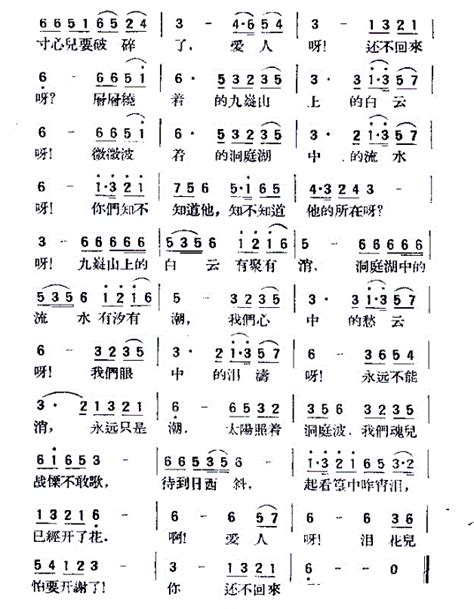 6 6 5 1 6 5 2 4 3 - 4·6 5 4 3 - 1 3 2 1
寸心兒要破 碎 了, 愛 人 呀! 还不回來
6 - 6 6 5 1 6 · 5 3 2 3 5 3 · 3 1·3 5 7
呀? 層層繞 着 的九嶷山 上 的白云
6 - 6 6 5 1 6 · 5 3 2 3 5 3 · 3 1·3 5 7
呀! 微微波 着 的洞庭湖 中 的流水
6 - 1·3 2 1 7 5 6 5·1 6 5 4·3 2 4 3
呀! 你們知不 知道他, 知不知道 他的所在呀?
3 - 6 6 6 6 6 5 3 5 6 1 2 1 6 5 - 6 6 6 6 6
呀! 九嶷山上的 白 云 有聚有 消, 洞庭湖中的
5 3 5 6 1 2 1 6 5 · 3 2 3 5 3 2 1·3 5 7
流 水 有汐有 潮, 我們心 中 的愁云
6 - 3 2 3 5 3 · 2 1·3 5 7 6 - 3 6 5 4
呀! 我們眼 中 的泪濤 呀! 永远不能
3 · 2 1 3 2 1 6 - 5 3 2 3 5 1 6 5 3 5
消, 永远只是 潮. 太陽照着 洞庭波, 我們魂兒
6 1 6 5 3 6 6 5 3 5 5 - 1·3 2 1 6 5 3·2
战慄不敢歌, 待到日西 斜, 起看篁中昨宵泪,
1 3 2 1 6 - 6 - 6 5 7 6 - 6 3 6
已經开了花. 啊! 愛 人 呀! 泪 花兒
5 4 1 2 3 3 - 1 3 2 1 6 - - 0
怕要开謝了! 你 还不回來